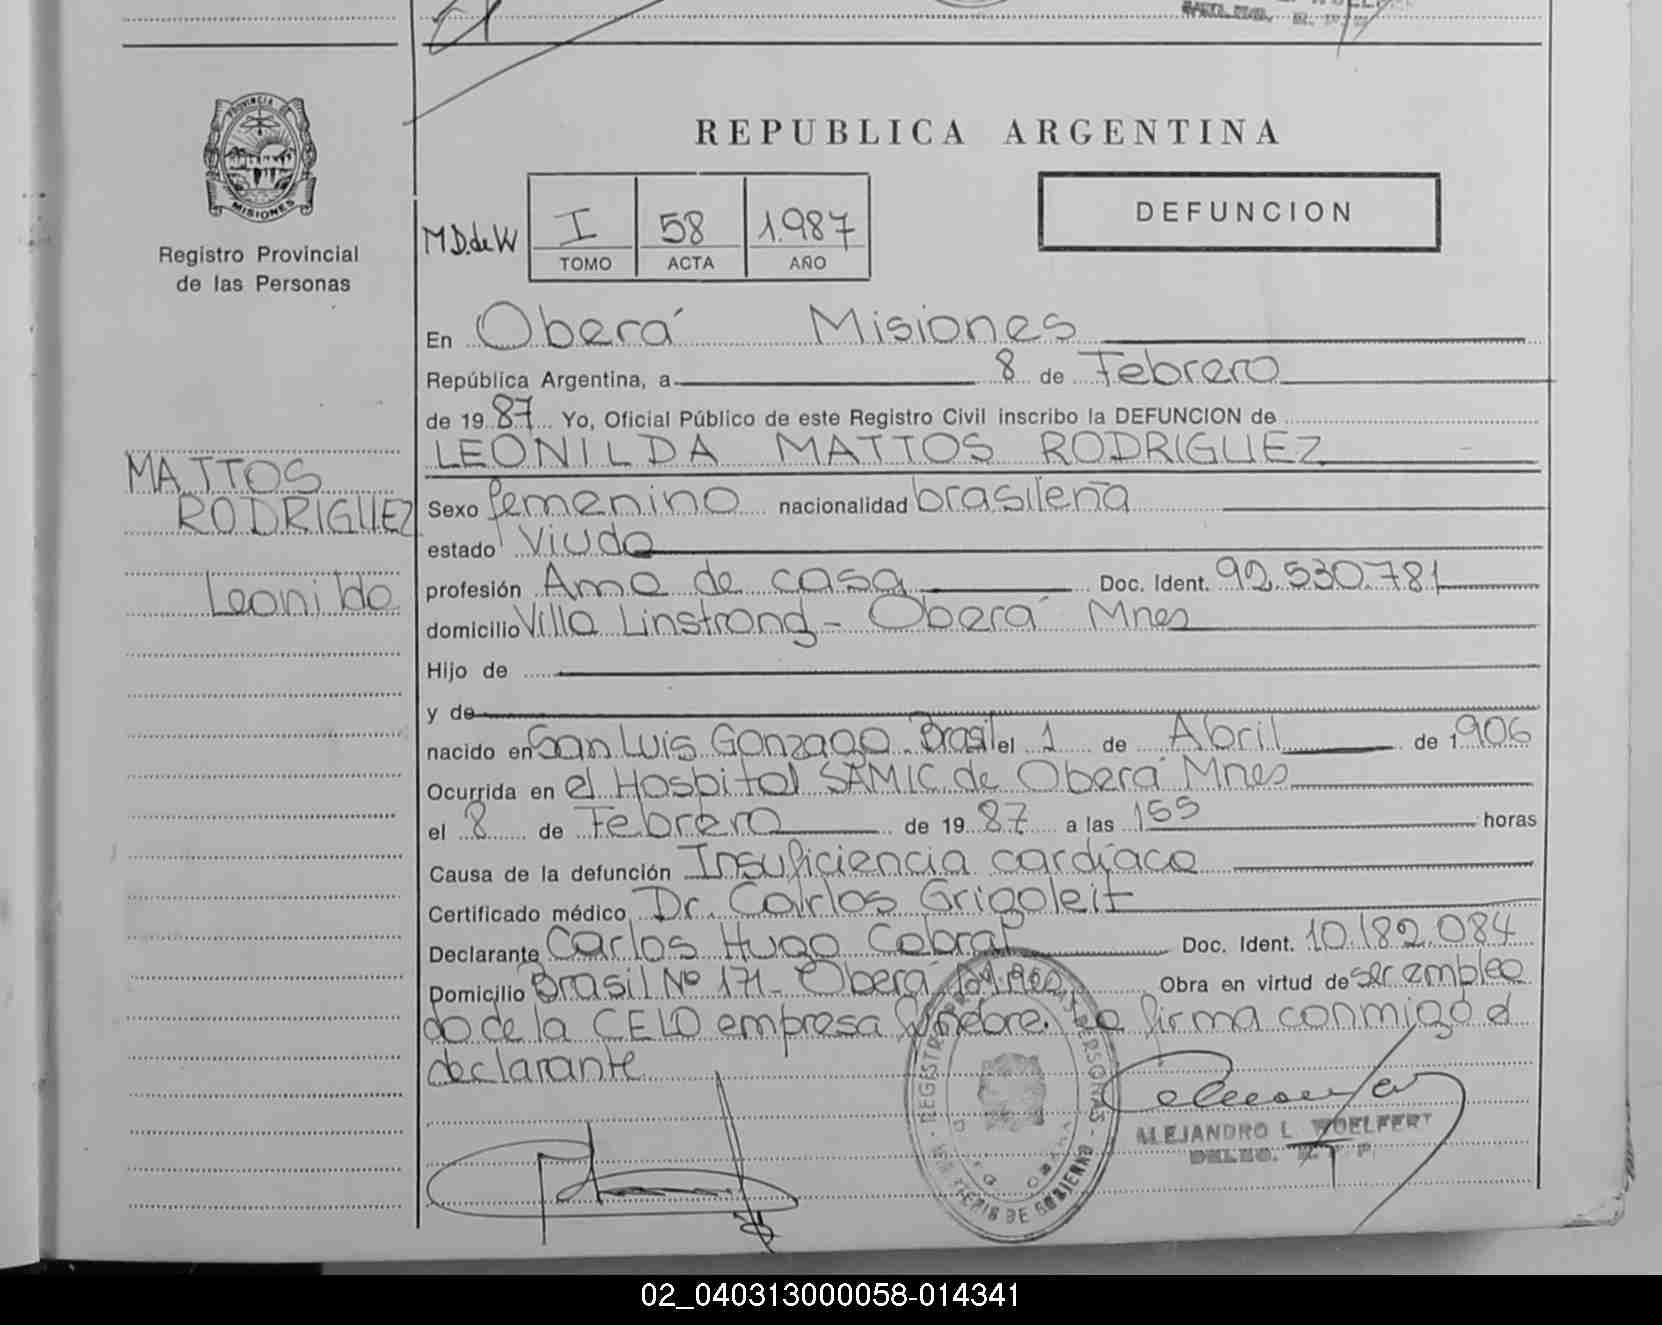 PROVINCIA DE
MISIONES
Registro Provincial
de las Personas
REPUBLICA ARGENTINA
DEFUNCION
M D.de W
I 58 1.987
TOMO ACTA AÑO
MATTOS
RODRIGUEZ
Leonilda
En Oberá Misiones
República Argentina, a 8 de Febrero
de 19 87 Yo, Oficial Público de este Registro Civil inscribo la DEFUNCION de
LEONILDA MATTOS RODRIGUEZ
Sexo femenino nacionalidad brasileña
estado Viuda
profesión Ama de casa Doc. Ident. 92.530.781
domicilio Villa Linstrond - Oberá Mnes
Hijo de
y de
nacido en San Luis Gonzaga Brasil el 1 de Abril de 1906
Ocurrida en el Hospital SAMIC de Oberá Mnes
el 8 de Febrero de 19 87 a las 155 horas
Causa de la defunción Insuficiencia cardíaca
Certificado médico Dr. Carlos Grigoleit
Declarante Carlos Hugo Cabral Doc. Ident. 10.182.084
Domicilio Brasil Nº 171 - Oberá Obra en virtud de ser emplea
do de la CELO empresa fúnebre. firma conmigo el
declarante
ALEJANDRO L. WOELFERT
02_040313000058-014341